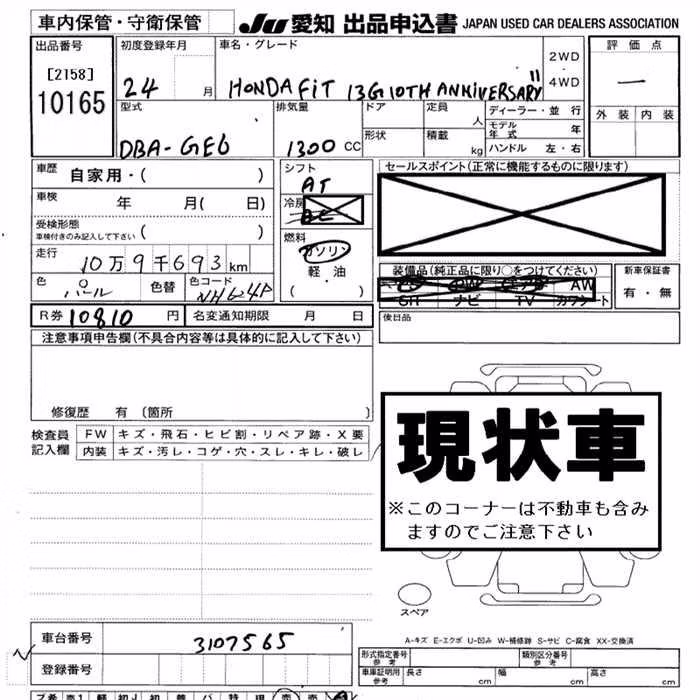 車内保管・守衛保管
JU 愛知 出品申込書 JAPAN USED CAR DEALERS ASSOCIATION
出品番号
[2158]
10165
初度登録年月
24 月
車名・グレード
HONDA FIT 13G 10TH ANNIVERSARY
2WD
・
4WD
評価点
一
外装 内装
型式
DBA-GE6
排気量
1300 CC
ドア
形状
定員
人
積載
kg
ディーラー・並行
モデル年式 年
ハンドル 左・右
車歴 自家用・( )
車検 年 月( 日)
受検形態
車検付きのみ記入して下さい ( )
走行
10万9千693km
色 パール
色替
色コード
NH624P
シフト
AT
冷房
燃料
ガソリン
軽油
・
( )
セールスポイント(正常に機能するものに限ります)
装備品(純正品に限り○をつけてください)
AW
SR ナビ TV カワシート
新車保証書
有・無
R券 10810 円 名変通知期限 月 日
後日品
注意事項申告欄(不具合内容等は具体的に記入して下さい)
修復歴 有 〔箇所 〕
検査員
記入欄
FW キズ・飛石・ヒビ割・リペア跡・X要
内装 キズ・汚レ・コゲ・穴・スレ・キレ・破レ
現状車
※このコーナーは不動車も含み
ますのでご注意下さい
スペア
A-キズ E-エクボ U-凹み W-補修跡 S-サビ C-腐食 XX-交換済
車台番号 3107565
登録番号
形式指定番号
参考
類別区分番号
参考
車庫証明用
参考
長さ cm 幅 cm 高さ cm